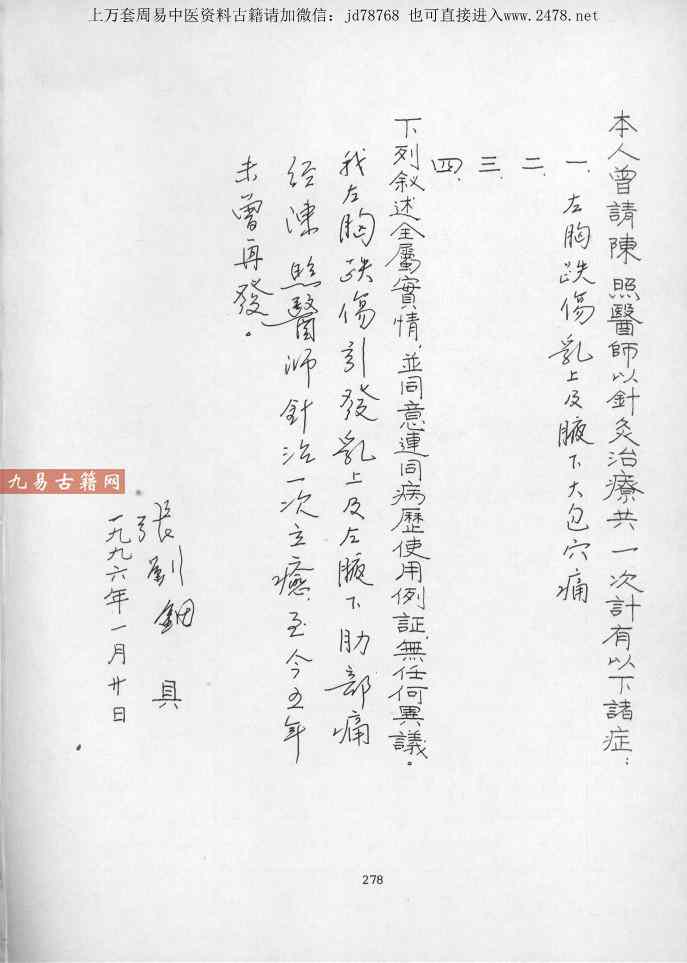 上万套周易中医资料古籍请加微信：jd78768 也可直接进入www.2478.net
本人曾請陳照醫師以針灸治療共一次計有以下諸症：
一、左胸跌傷乳上及腋下大包穴痛
二、
三、
四、
下列叙述全屬實情，並同意連同病歷使用例証，無任何異議。
我左胸跌傷引發乳上及左腋下肋部痛
經陳照醫師針治一次立癒至今五年
未曾再發。
張劉銀 具
一九九六年一月廿日
九易古籍网
278